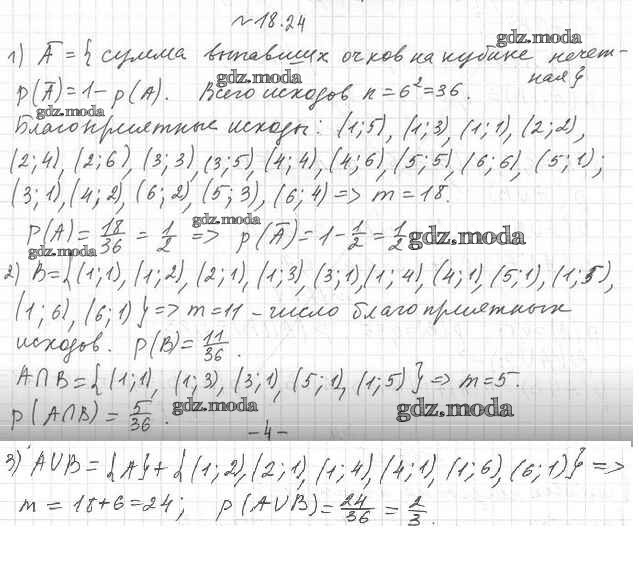 №18.24
gdz.moda
1) Ā = { сумма выпавших очков на кубике нечет-
ная}
gdz.moda
p(Ā)=1-p(A). Всего исходов n=6²=36.
gdz.moda
Благоприятные исходы: (1;5), (1;3), (1;1), (2;2),
(2;4), (2;6), (3;3), (3;5), (4;4), (4;6), (5;5), (6;6), (5;1);
(3;1), (4;2), (6;2), (5;3), (6;4) => m=18.
gdz.moda
p(A)= 18/36 = 1/2 => p(Ā)=1-1/2=1/2 gdz.moda
gdz.moda
2) B={(1;1), (1;2), (2;1), (1;3), (3;1), (1;4), (4;1), (5;1), (1;5),
(1;6), (6;1)} => m=11 - число благоприятных
исходов. p(B)= 11/36.
A∩B={(1;1), (1;3), (3;1), (5;1), (1;5)} => m=5.
p(A∩B)= 5/36. gdz.moda gdz.moda
-4-
3) A∪B={A}+{(1;2), (2;1), (1;4), (4;1), (1;6), (6;1)} =>
m=18+6=24; p(A∪B)= 24/36 = 2/3.